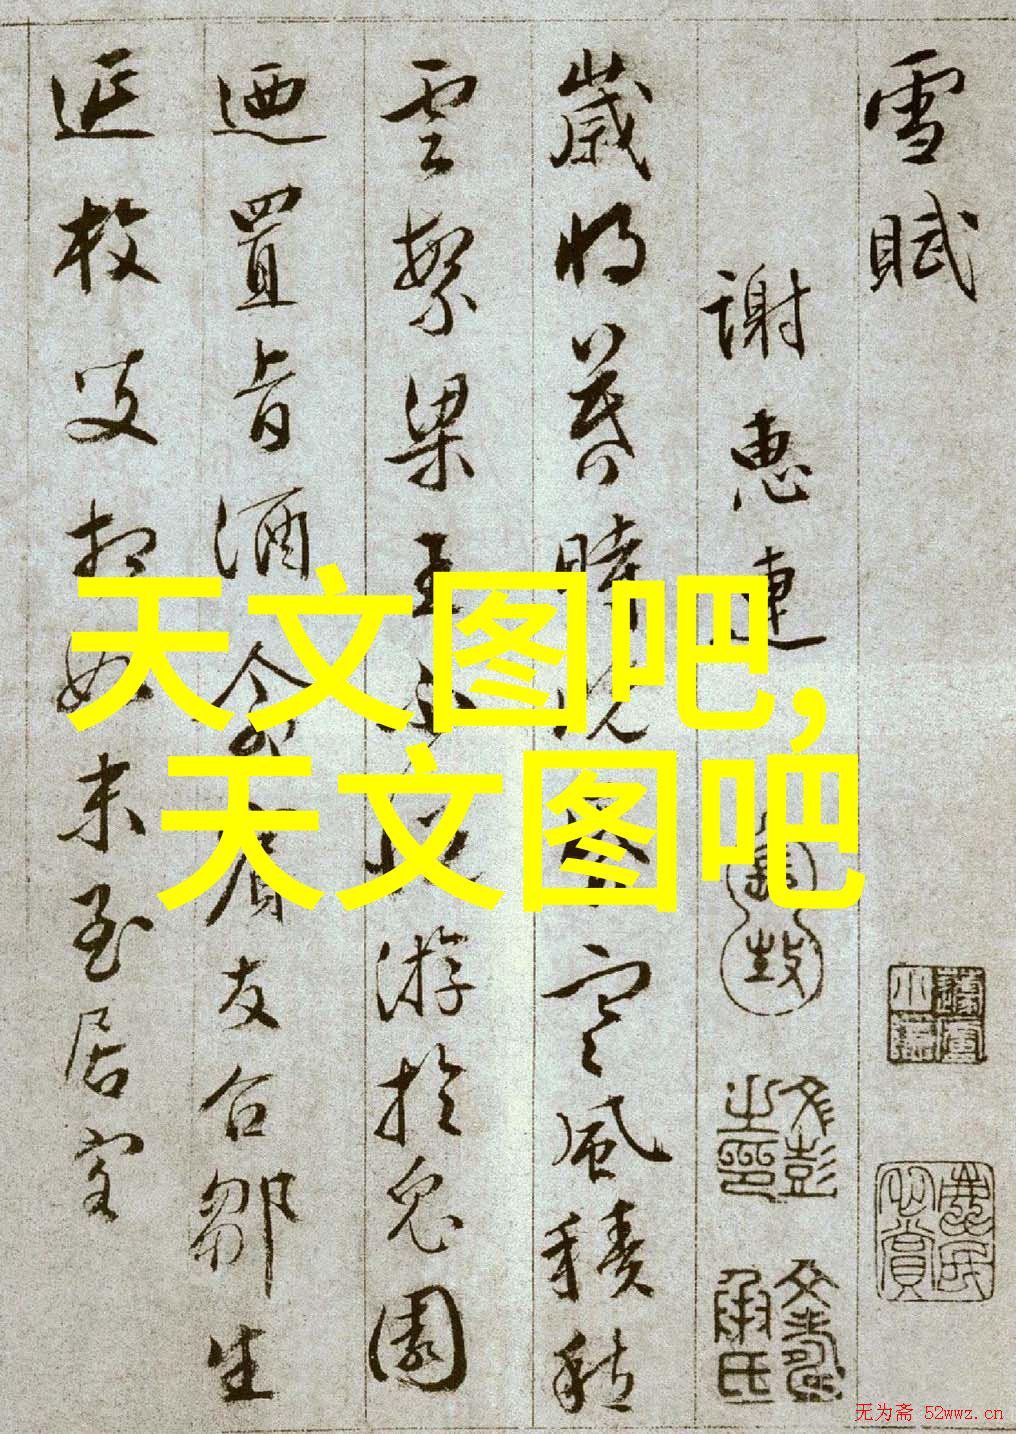 雪賦
謝惠連
歲将暮時既寒風積愁
雲繁梁王游於兔園
迺置旨酒命賓友召鄒生
延枚叟相如末至居客
天文图吧,
天文图吧
无为斋 52wwz.cn